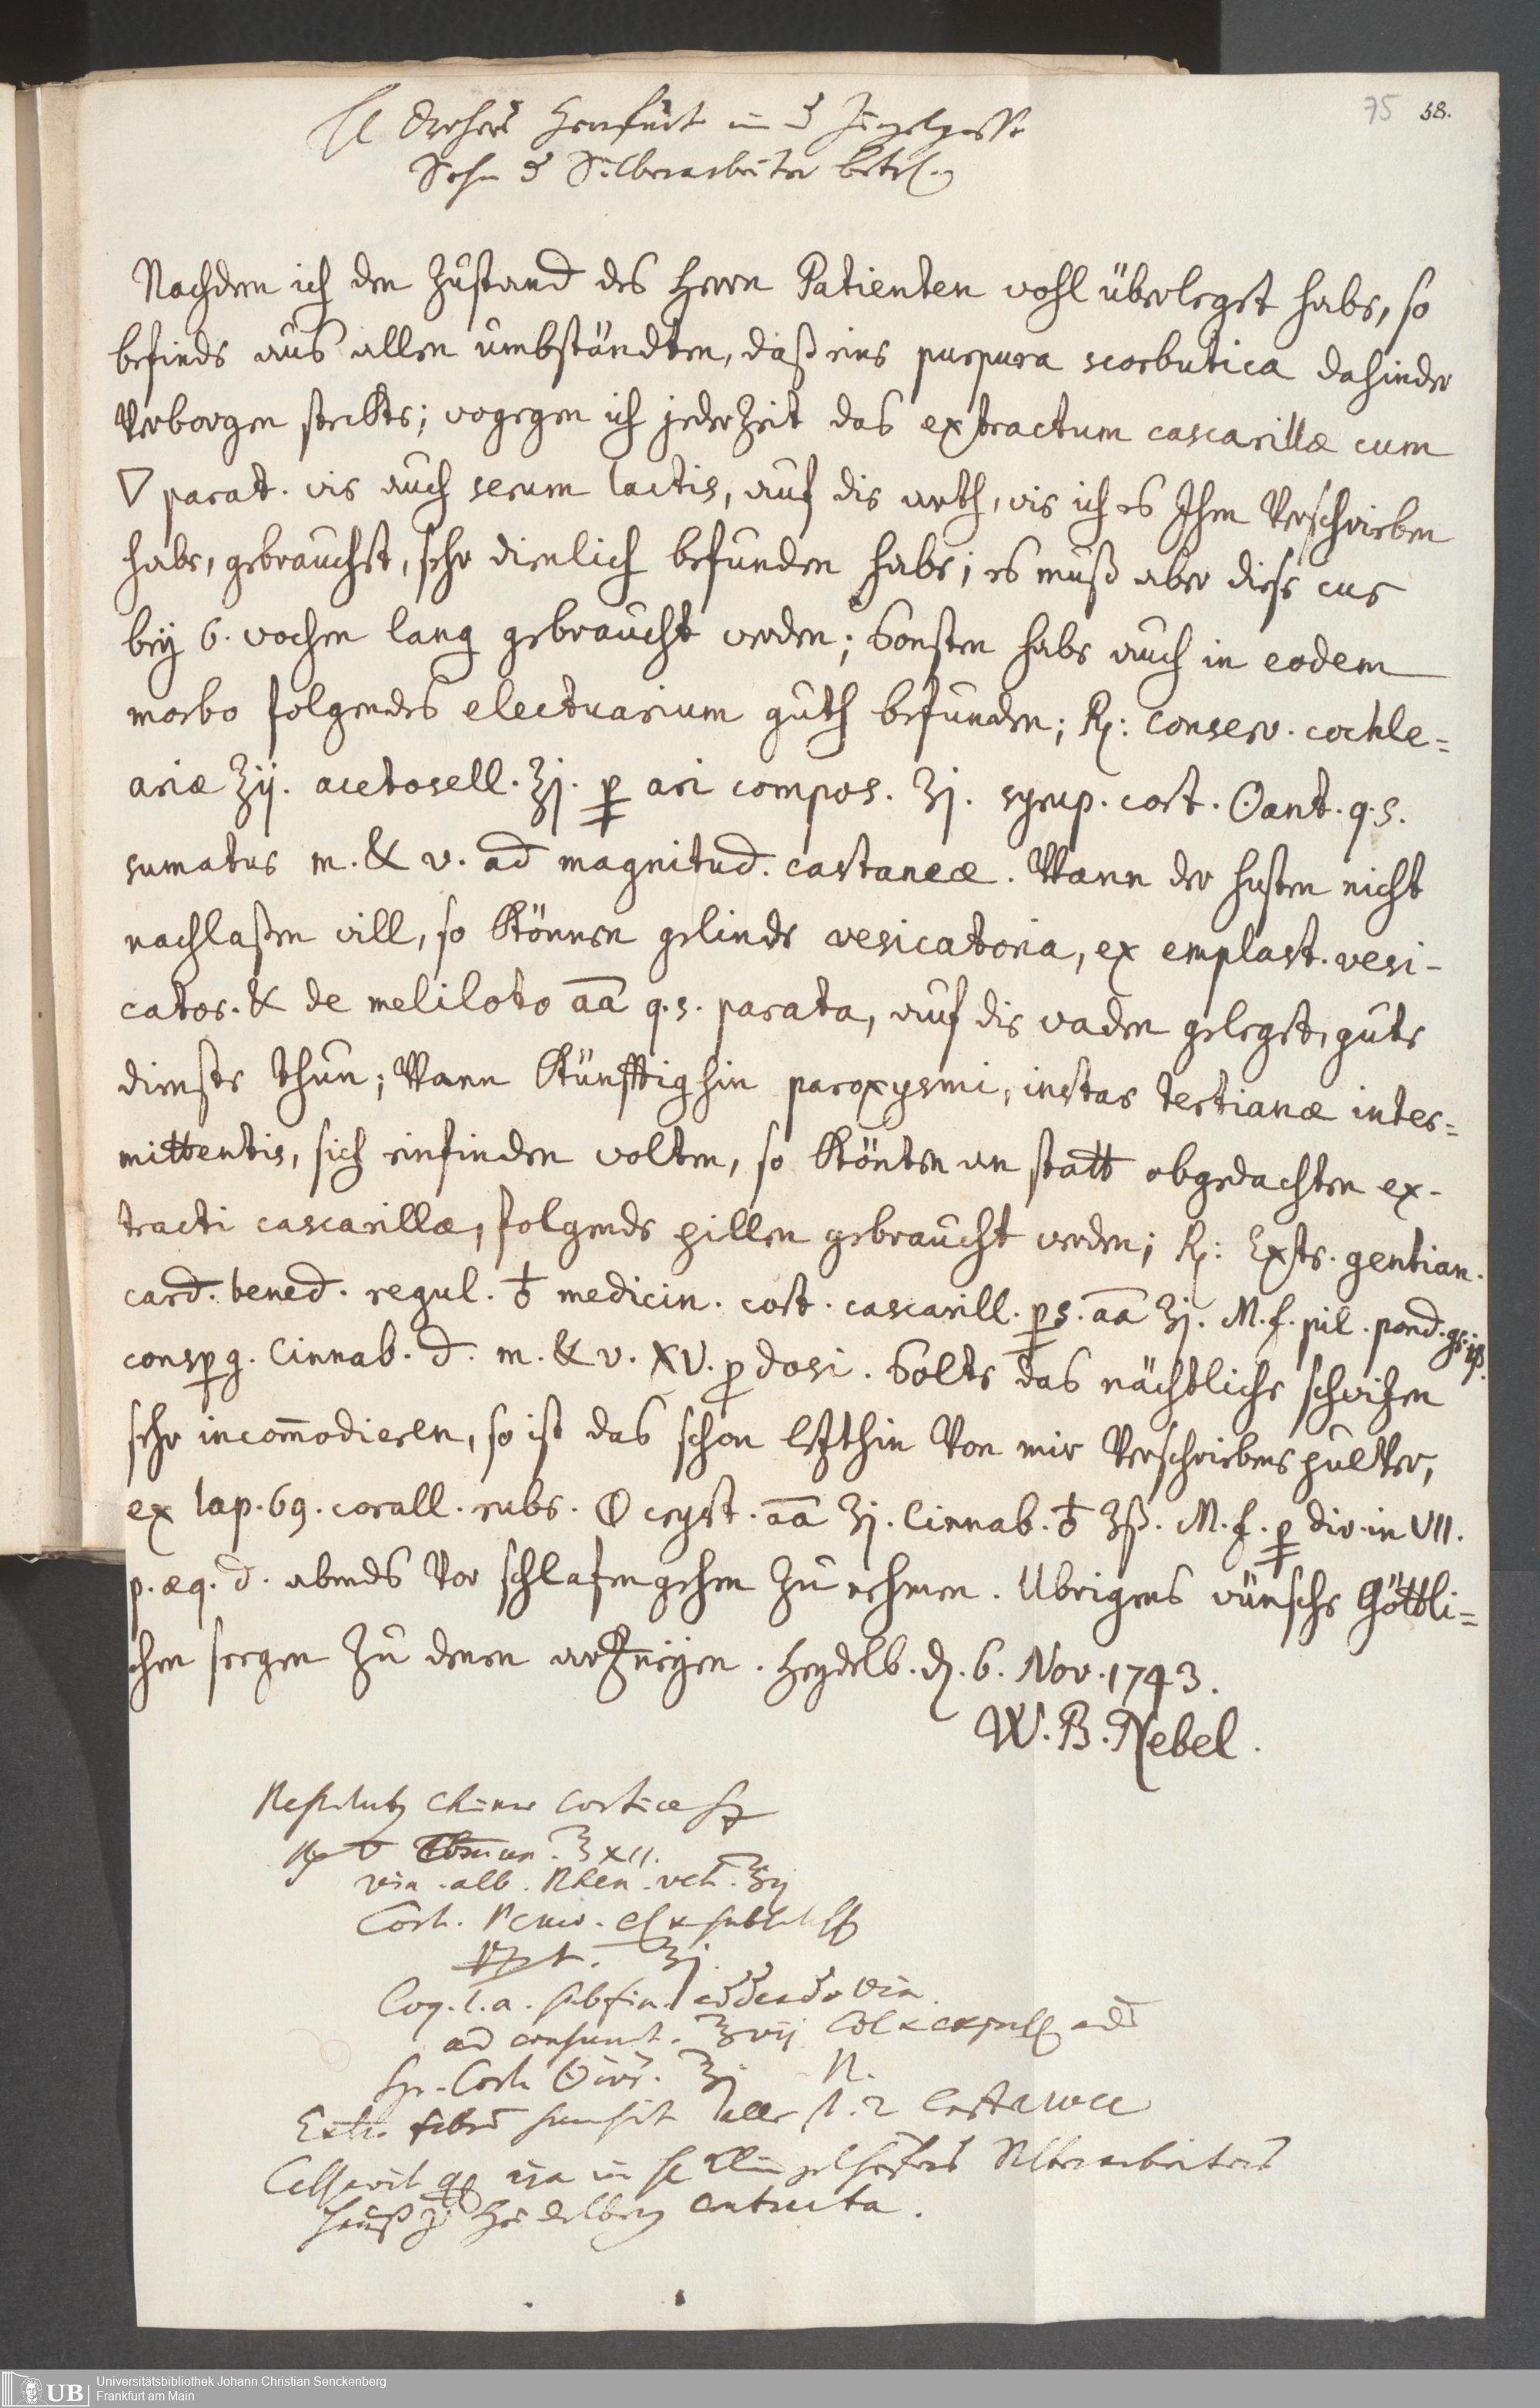 75 58.
in der
Sohn d Silberarbeiter betr.
Nachdem ich den Zustand des Herrn Patienten wohl überlegt habe, so
befinde aus allen umbständten, daß eine purpura scorbutica dahinder
Verborgen steckte; wogegen ich jederzeit das extractum cascarillæ cum
▽ parat. wie auch serum lactis, auf die arth, wie ich es Ihm Verschrieben
habe, gebraucht, sehr dienlich befunden habe; es muß aber diese cur
bey 6. wochen lang gebraucht werden; Sonsten habe auch in eodem
morbo folgendes electuarium guth befunden; ℞: conserv. cochle=
ariæ ℥ij. acetosell. ℥j. p̱ ari compos. ʒj. syrup. cort. Oant. q. s.
sumatur m. & v. ad magnitud. castaneæ. Wann der husten nicht
nachlaßen will, so können gelinde vesicatoria, ex emplast. vesi-
cator. & de meliloto aa q. s. parata, auf die waden gelegt, gute
dienste thun; Wann künfftighin paroxysmi, instar tertianæ inter=
mittentis, sich einfinden wolten, so könten an statt obgedachten ex-
tracti cascarillæ, folgende pillen gebraucht werden; ℞: Extr. gentian.
card. bened. regul. ♁ medicin. cort. cascarill. p̱s. aa ʒj. M. f. pil. pond. gr. iß.
consperg. Cinnab. d. m. & v. XV. pro dosi. Solte das nächtliche schwizen
sehr incom̄odieren, so ist das schon letzthin Von mir Verschriebene pulver,
ex lap. 69. corall. rubr. ⦶ cryst. aa ʒj. Cinnab. ♁ ʒß. M. f. p̱ div. in VII.
p. æq. d. abends Vor schlafengehen zu nehmen. Ubrigens wünsche Göttli=
chen seegen zu denen artzneyen. Heydelb. d. 6. Nov. 1743.
W. B. Nebel.
Chinæ cortice
℞ ▽ ℥XII.
vin. alb. Rhen. vet. ℥ij
Cort.
℥j.
Coq. l. a. sub fin. addendo vin.
ad consumt. ℥vij
Syr. Cort. ℥j
Extr.
Cessavit in Silberarbeiters
Hauß zu Heidelberg contracta.
Universitätsbibliothek Johann Christian Senckenberg
UB Frankfurt am Main